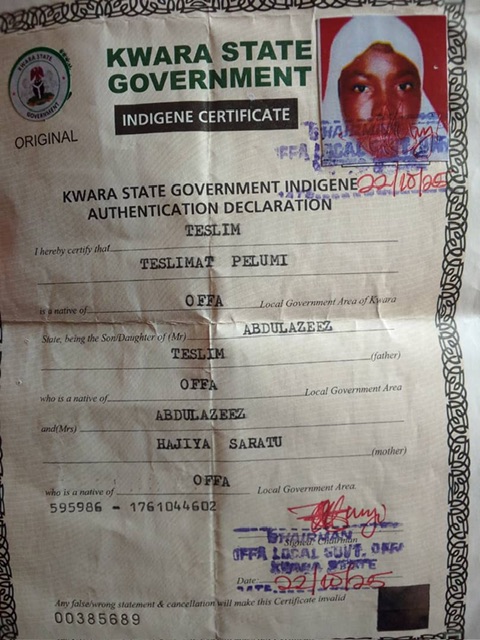 KWARA STATE
GOVERNMENT
KWARA STATE
GOVERNMENT
INDIGENE CERTIFICATE
ORIGINAL
CHAIRMAN
OFFA LOCAL GOVT. OFFA
22/10/25
KWARA STATE GOVERNMENT INDIGENE
AUTHENTICATION DECLARATION
TESLIM
I hereby certify that
TESLIMAT PELUMI
OFFA
is a native of Local Government Area of Kwara
ABDULAZEEZ
State, being the Son/Daughter of (Mr)
TESLIM
(father)
OFFA
who is a native of Local Government Area
ABDULAZEEZ
and(Mrs)
HAJIYA SARATU
(mother)
OFFA
who is a native of Local Government Area.
595986 - 1761044602
CHAIRMAN
Signed: Chairman
OFFA LOCAL GOVT. OFFA
KWARA STATE
Date: 22/10/25
DATE
Any false/wrong statement & cancellation will make this Certificate invalid
00385689